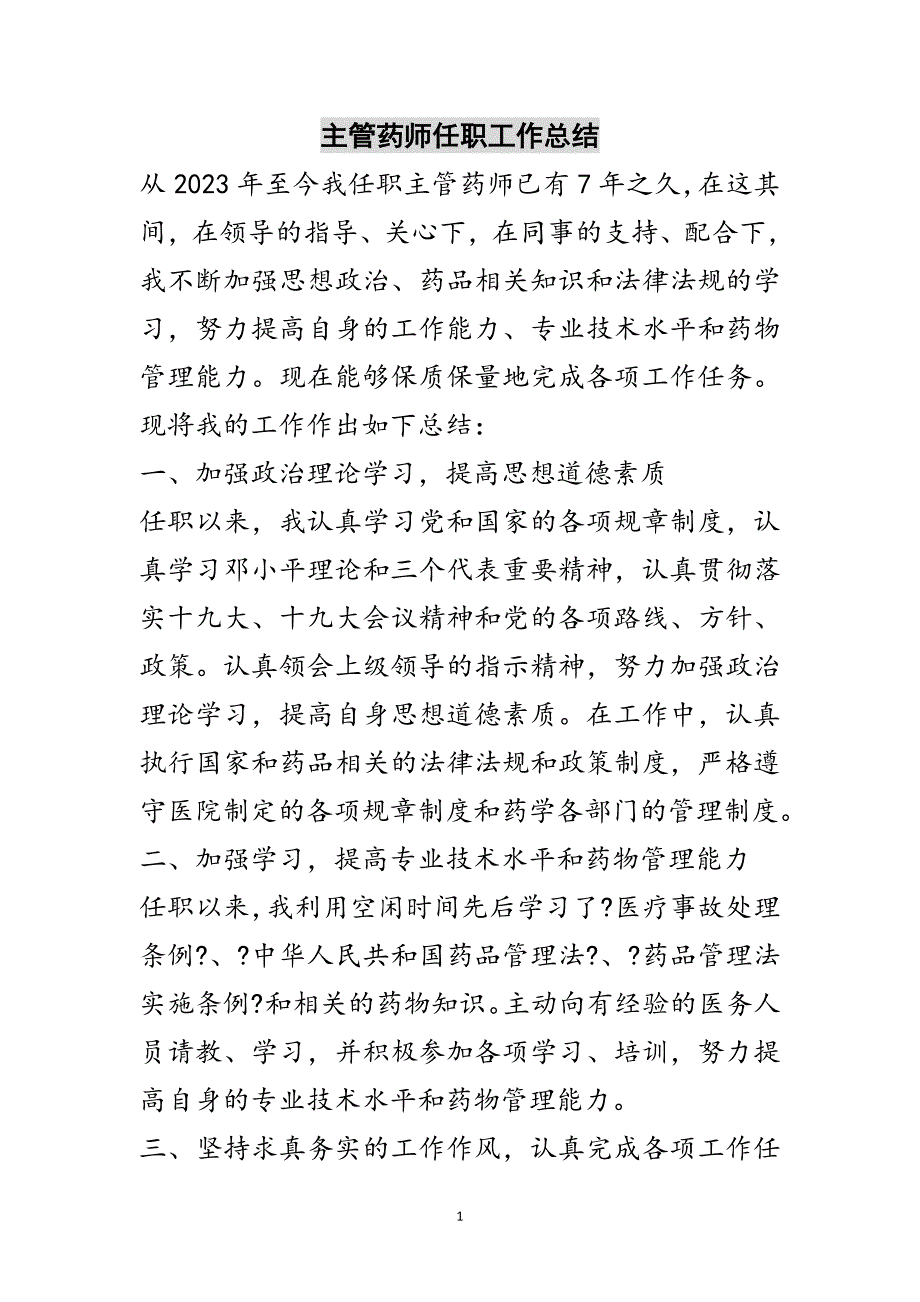 主管药师任职工作总结
从 2023 年至今我任职主管药师已有 7 年之久，在这其
间，在领导的指导、关心下，在同事的支持、配合下，
我不断加强思想政治、药品相关知识和法律法规的学
习，努力提高自身的工作能力、专业技术水平和药物
管理能力。现在能够保质保量地完成各项工作任务。
现将我的工作作出如下总结：
一、加强政治理论学习，提高思想道德素质
任职以来，我认真学习党和国家的各项规章制度，认
真学习邓小平理论和三个代表重要精神，认真贯彻落
实十九大、十九大会议精神和党的各项路线、方针、
政策。认真领会上级领导的指示精神，努力加强政治
理论学习，提高自身思想道德素质。在工作中，认真
执行国家和药品相关的法律法规和政策制度，严格遵
守医院制定的各项规章制度和药学各部门的管理制度。
二、加强学习，提高专业技术水平和药物管理能力
任职以来，我利用空闲时间先后学习了?医疗事故处理
条例?、?中华人民共和国药品管理法?、?药品管理法
实施条例?和相关的药物知识。主动向有经验的医务人
员请教、学习，并积极参加各项学习、培训，努力提
高自身的专业技术水平和药物管理能力。
三、坚持求真务实的工作作风，认真完成各项工作任
1